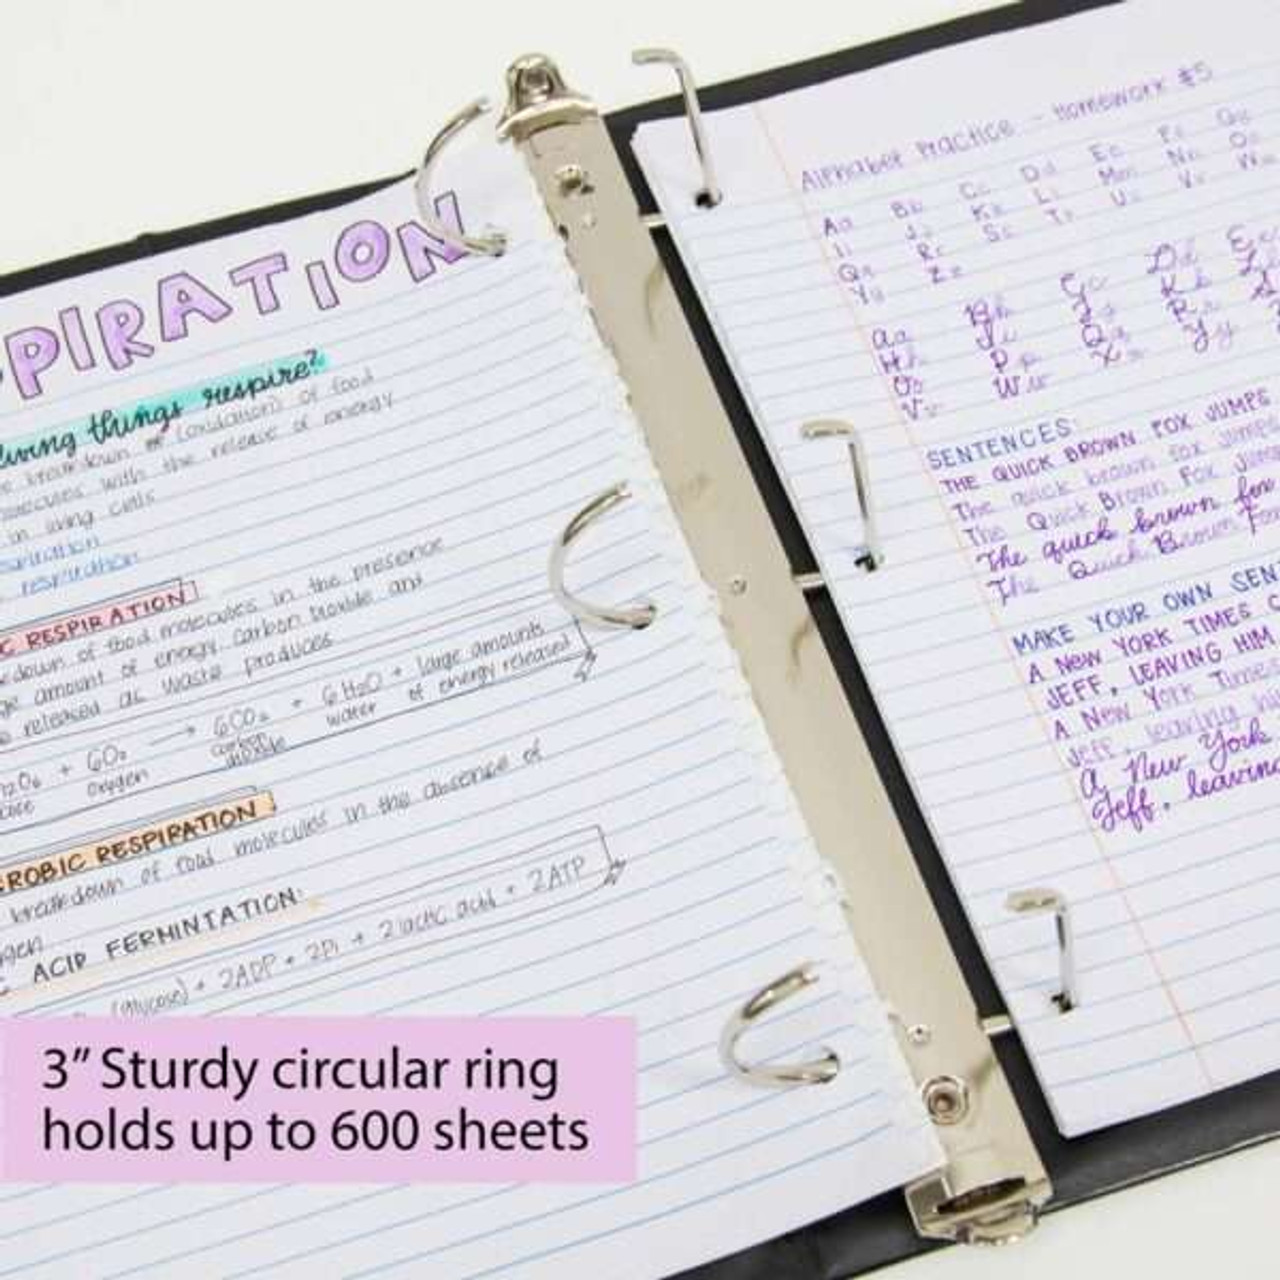 PIRATION
living things respire?
breakdown of (oxidation) of food
molecules with the release of energy
in living cells
respiration
respiration
C RESPIRATION
kdown of food molecules in the presence
amount of energy. Carbon Dioxide and
released as waste products
+ 6O₂ → 6CO₂ + 6H₂O + large amounts
Oxygen carbon dioxide water of energy released
ROBIC RESPIRATION
breakdown of food molecules in the absence of
gen
C ACID FERMINTATION:
(glucose) + 2ADP + 2Pi → 2 lactic acid + 2ATP
3” Sturdy circular ring
holds up to 600 sheets
Alphabet Practice - Homework #5
Aa Bb Cc Dd Ee Ff Gg
Ii Jj Kk Ll Mm Nn Oo
Qq Rr Ss Tt Uu Vv Ww
Yy Zz
Aa Bb Cc Dd Ee
Hh Ii Jj Kk Ll
Oo Pp Qq Rr Ss
Vv Ww Xx Yy
SENTENCES:
THE QUICK BROWN FOX JUMPS
The quick brown fox jumps
The Quick Brown Fox Jumps
The quick brown fox
The Quick Brown Fox
MAKE YOUR OWN SEN
A NEW YORK TIMES
JEFF, LEAVING HIM
A New York Times
Jeff, leaving him
A New York
Jeff, leaving